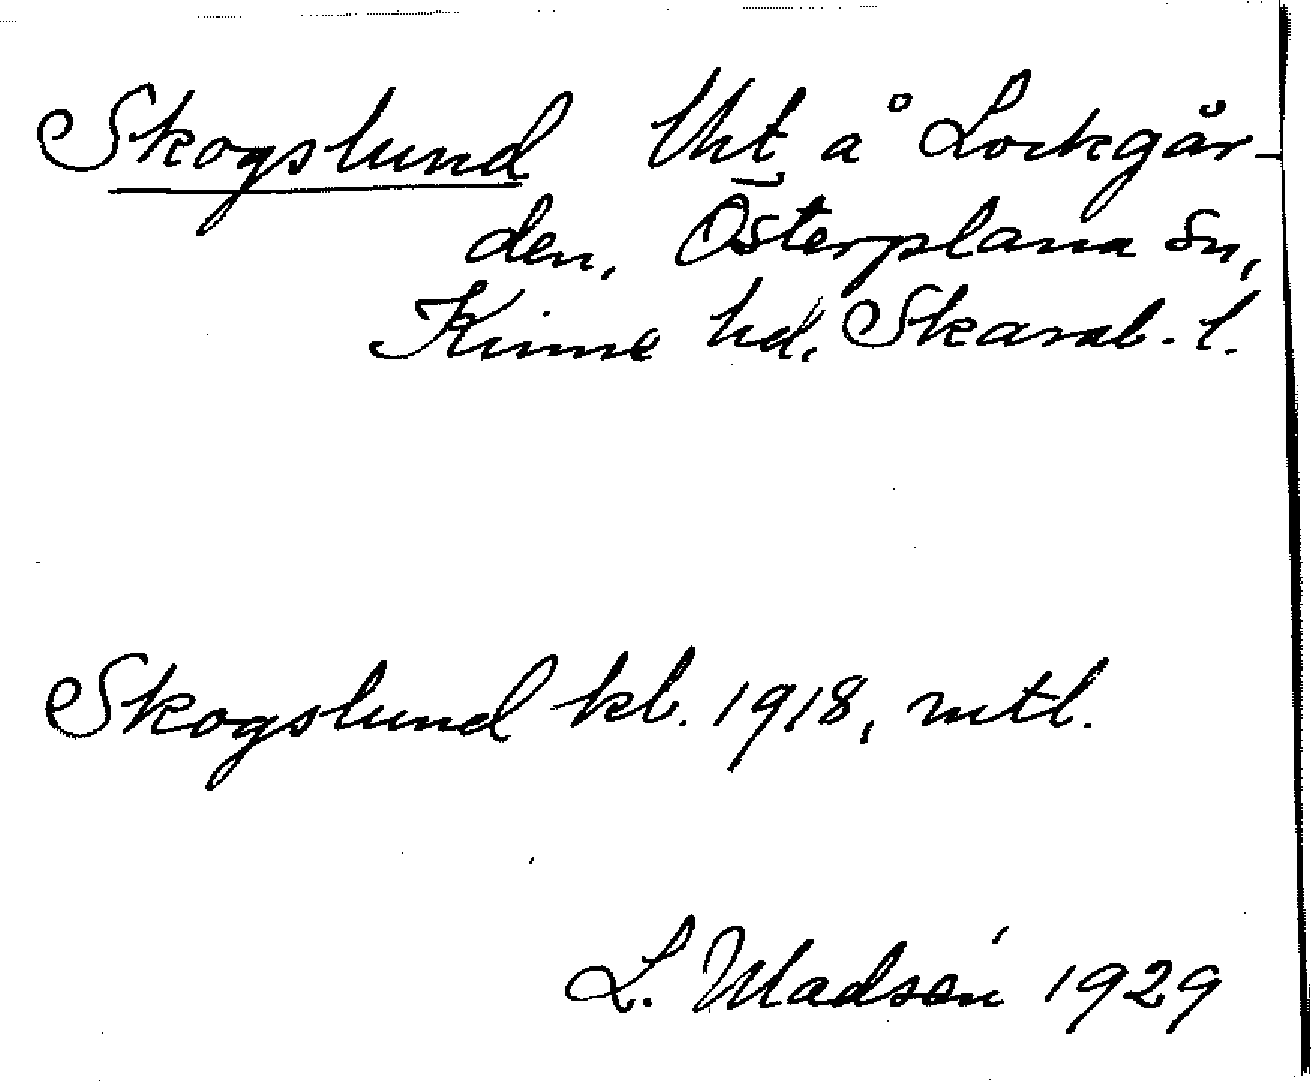 Skogslund Uht å Lockgår-
den, Österplana Sn,
Kinne hd, Skarab. l.
Skogslund kb. 1918, mtl.
L. Madsén 1929